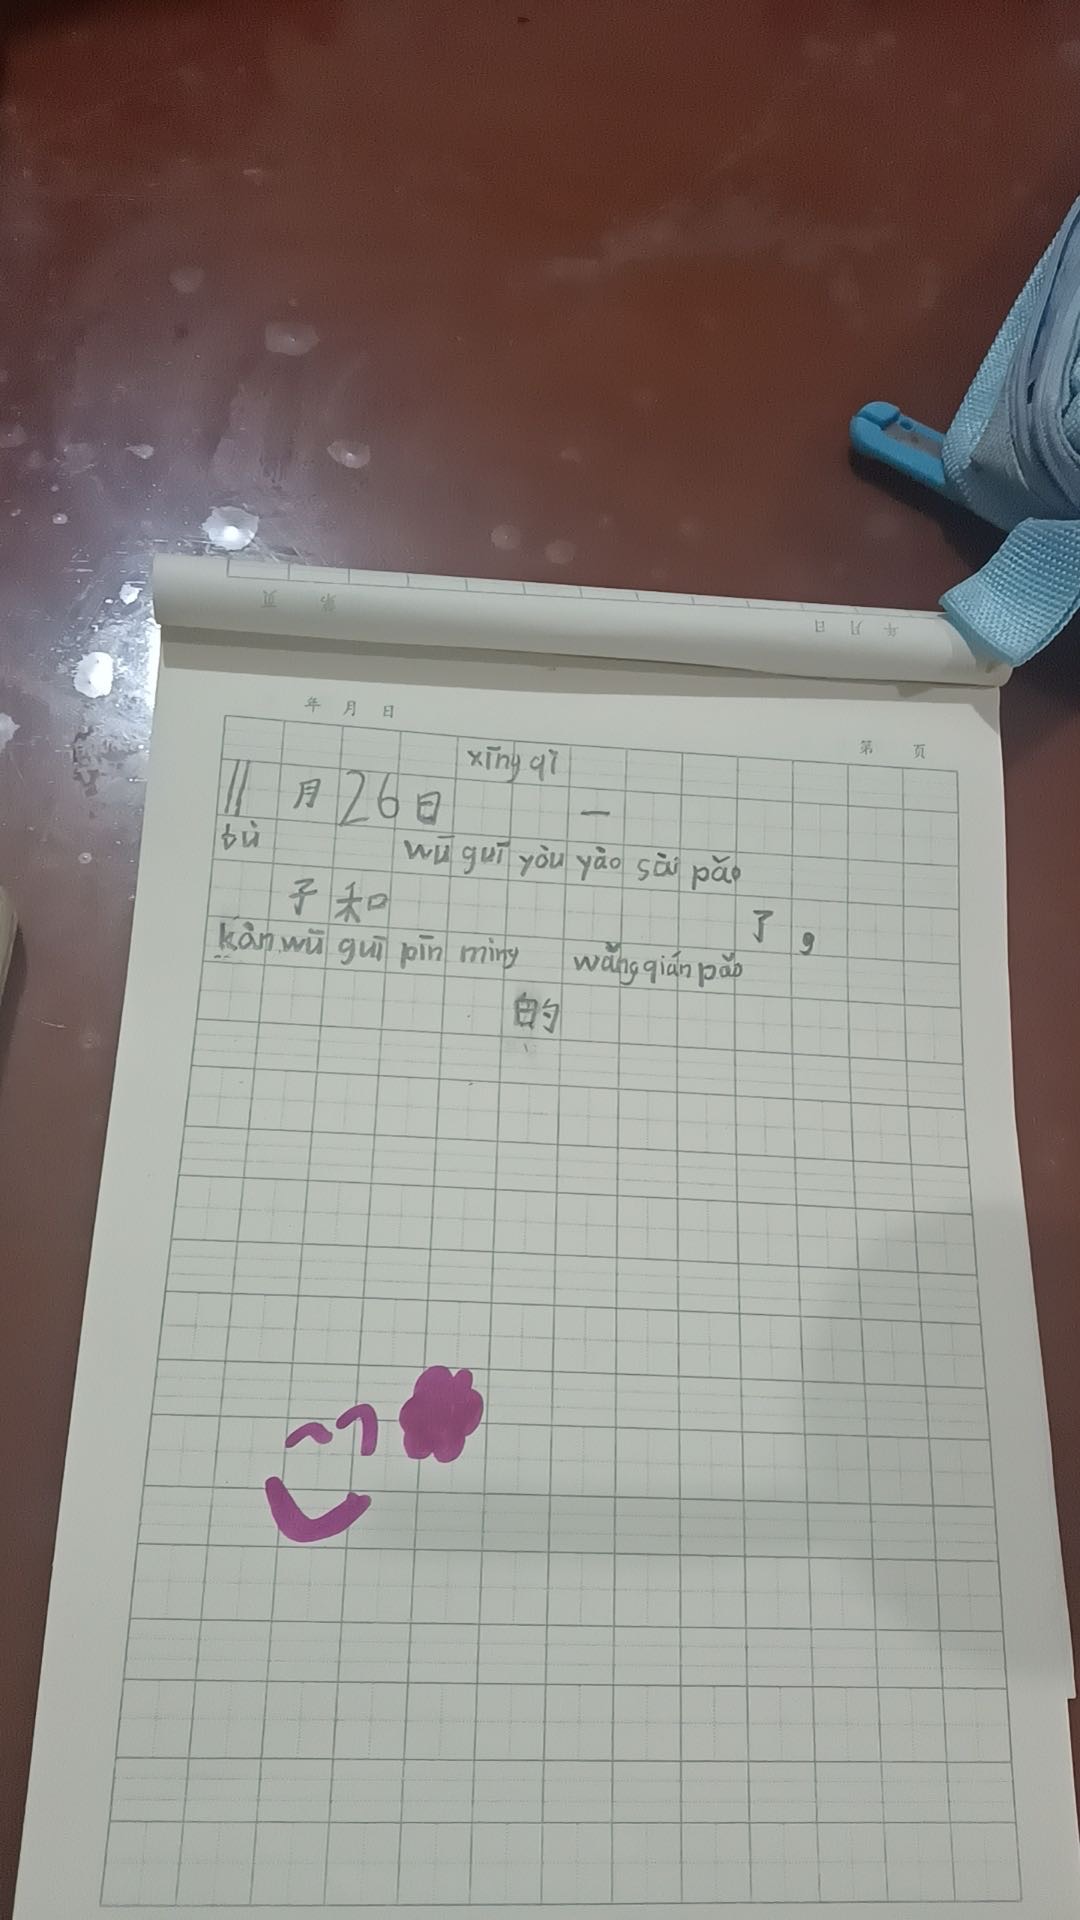 年 月 日
第 页
xīng qī
11月26日 一
tù wū guī yòu yào sài pǎo
子和 了,
kàn wū guī pīn mìng wǎng qián pǎo
的